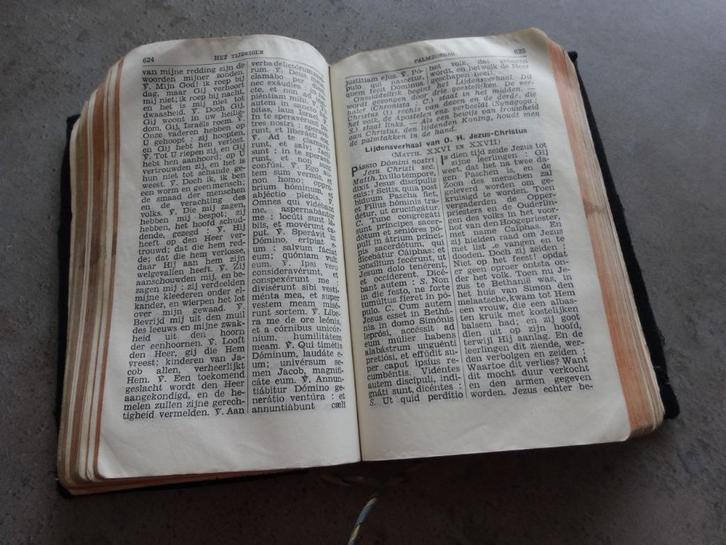 624 HET TIJDEIGEN
van mijne redding zijn de
woorden mijner zonden.
℣. Mijn God! ik roep bij
dag, maar Gij verhoort
mij niet; ik roep bij nacht,
en het is mij niet tot
dwaasheid. ℣. Doch Gij
woont in uw heilig-
dom, Gij, Israëls roem. ℣.
Onze vaderen hebben op
U gehoopt; zij hoopten,
en Gij hebt hen verlost.
℣. Tot U riepen zij, en Gij
hebt hen aanhoord; op U
vertrouwden zij, en het is
hun niet tot schande ge-
weest. ℣. Doch ik, ik ben
een worm en geen mensch;
de smaad der menschen
en de verachting des
volks. ℣. Die mij zagen,
hebben mij bespot; zij
hebben, het hoofd schud-
dende, gezegd: ℣. Hij
heeft op den Heer ver-
trouwd; dat die hem red-
de; dat die hem verlosse,
daar Hij aan hem zijn
welgevallen heeft. ℣. Zij
aanschouwden mij, en be-
zagen mij; zij verdeelden
mijne kleederen onder el-
kander, en wierpen het lot
over mijn gewaad. ℣.
Bevrijd mij uit den muil
des leeuws en mijne zwak-
heid uit den hoorn
der eenhoornen. ℣. Looft
den Heer, gij die Hem
vreest; kinderen van Ja-
cob allen, verheerlijkt
Hem. ℣. Een toekomend
geslacht wordt den Heer
aangekondigd, en de he-
melen zullen zijne gerech-
tigheid vermelden. ℣. Aan
verba delictórum meórum.
℣. Deus meus,
clamábo per diem,
nec exáudies: in nocte,
et non ad insipiéntiam mihi. ℣. Tu
autem in sancto hábitas,
laus Israël. ℣. In te
speravérunt patres nostri: speravé-
runt, et liberásti eos. ℣.
Ad te clamavérunt,
et salvi facti
sunt: in te speravérunt,
et non sunt
confúsi. ℣. Ego au-
tem sum vermis, et
non homo: oppró-
brium hóminum, et
abjéctio plebis. ℣.
Omnes qui vidébant
me, aspernabántur
me: locúti sunt lá-
biis, et movérunt ca-
put. ℣. Sperávit in
Dómino, erípiat e-
um: salvum fáciat
eum; quóniam vult
eum. ℣. Ipsi vero
consideravérunt, et
conspexérunt me:
divisérunt sibi vesti-
ménta mea, et super
vestem meam misé-
runt sortem. ℣. Líbe-
ra me de ore leónis,
et a córnibus unicór-
nium humilitátem
meam. ℣. Qui timétis
Dóminum, laudáte e-
um; univérsum se-
men Jacob, magnifi-
cáte eum. ℣. Annun-
tiábitur Dómino ge-
nerátio ventúra: et
annuntiábunt cæli
PALMZONDAG 625
justítiam ejus. ℣. Pó-
pulo qui nascétur,
quem fecit Dóminus.
Lijdensverhaal van O. H. Jezus-Christus
(MATTH. XXVI EN XXVII)
PÁSSIO Dómini nostri
Jesu Christi sec.
Matth. In illo témpore,
dixit Jesus discípulis
suis: Scitis, quia post
bíduum Pascha fiet,
et Fílius hóminis tra-
détur, ut crucifigátur.
C. Tunc congregáti
sunt príncipes sacer-
dótum et senióres pó-
puli in átrium prínci-
pis sacerdótum, qui
dicebátur Cáiphas: et
consílium fecérunt, ut
Jesum dolo tenérent,
et occíderent. Dicé-
bant autem: S. Non
in die festo, ne forte
tumúltus fíeret in pó-
pulo. C. Cum autem
Jesus esset in Bethá-
nia in domo Simónis
leprósi, accéssit ad
eum múlier habens
alabástrum unguénti
pretiósi, et effúdit su-
per caput ipsíus re-
cumbéntis. Vidéntes
autem discípuli, indi-
gnáti sunt, dicéntes:
S. Ut quid perdítio
IN dien tijd zeide Jezus tot
zijne leerlingen: Gij
weet, dat het na twee dagen
Paschen is, en de
Zoon des menschen zal
overgeleverd worden om ge-
kruisigd te worden. Toen
vergaderden de Opper-
priesters en de Ouderlin-
gen des volks in het voor-
hof van den Hoogepriester,
met name Caïphas. En
zij hielden raad om Jezus
met list te vangen en te
dooden. Doch zij zeiden:
Niet op het feest! opdat
er geen oproer ontsta on-
der het volk. Toen nu Je-
zus te Bethanië was, in
het huis van Simon den
melaatsche, kwam tot Hem
een vrouw, die een albas-
ten kruik met kostelijken
balsem had; en zij goot
dien uit op zijn hoofd,
terwijl Hij aanlag. En de
leerlingen dit ziende, wer-
den verbolgen en zeiden:
Waartoe dit verlies? Want
dit mocht duur verkocht
en den armen gegeven
worden. Jezus echter be-